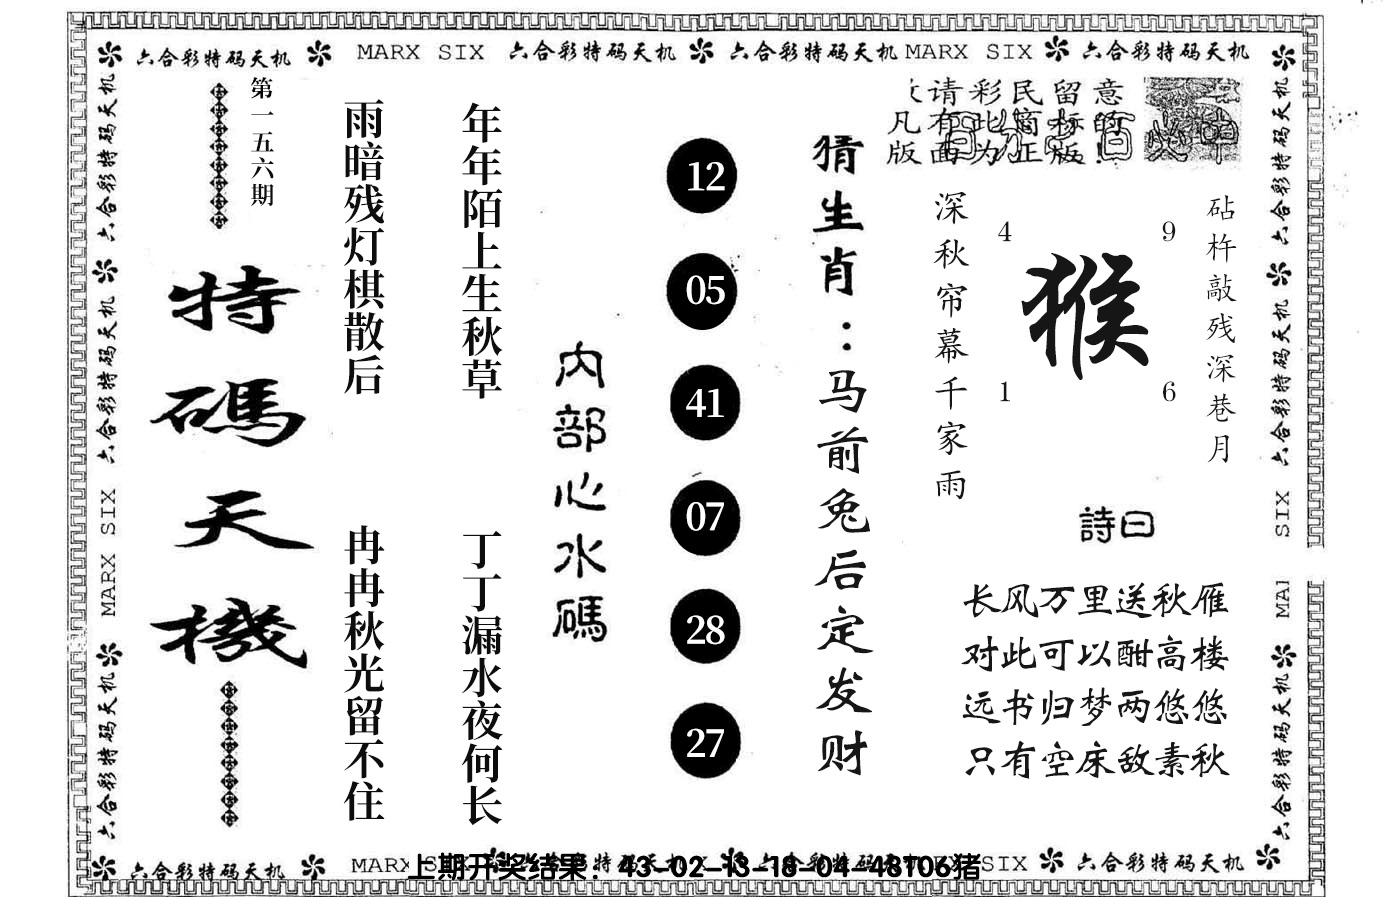 六合彩特码天机 MARX SIX 六合彩特码天机 六合彩特码天机 MARX SIX 六合彩特码天机
六合彩特码天机 六合彩特码天机 MARX SIX 六合彩特码天机
第一五六期
特碼天機
雨暗残灯棋散后
冉冉秋光留不住
年年陌上生秋草
丁丁漏水夜何长
内部心水碼
12
05
41
07
28
27
猜生肖：马前兔后定发财
请彩民留意
凡有此商标的
版面为正版!
深秋帘幕千家雨
4
9
猴
1
6
砧杵敲残深巷月
詩曰
长风万里送秋雁
对此可以酣高楼
远书归梦两悠悠
只有空床敌素秋
六合彩特码天机 六合彩特码天机 SIX MAI 六合彩特码天机
六合彩特码天机 MARX
上期开奖结果：43-02-13-18-04-48T06猪
SIX 六合彩特码天机